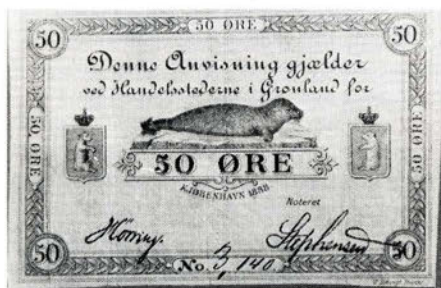 50 50 ØRE 50
Denne Anvisning gjælder
ved Handelsstederne i Grønland for
50 ØRE
50 ØRE
50 ØRE
KJØBENHAVN 1888
Noteret
Hörring. Stephensen
50 No. 3,140 50